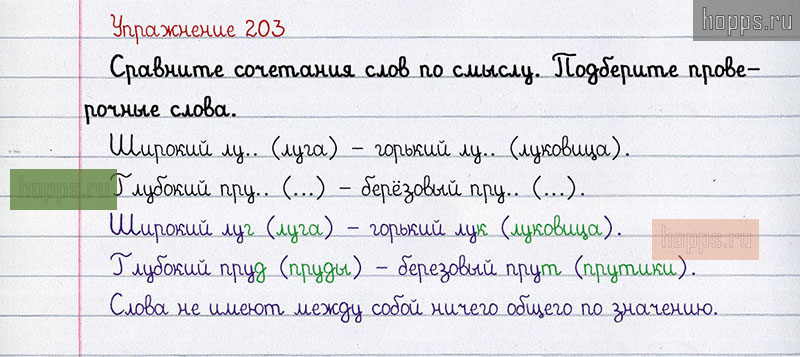 Упражнение 203
hopps.ru
Сравните сочетания слов по смыслу. Подберите прове-
рочные слова.
Широкий лу.. (луга) – горький лу.. (луковица).
hopps.ru
Глубокий пру.. (...) – берёзовый пру.. (...).
Широкий луг (луга) – горький лук (луковица).
hopps.ru
Глубокий пруд (пруды) – березовый прут (прутики).
Слова не имеют между собой ничего общего по значению.